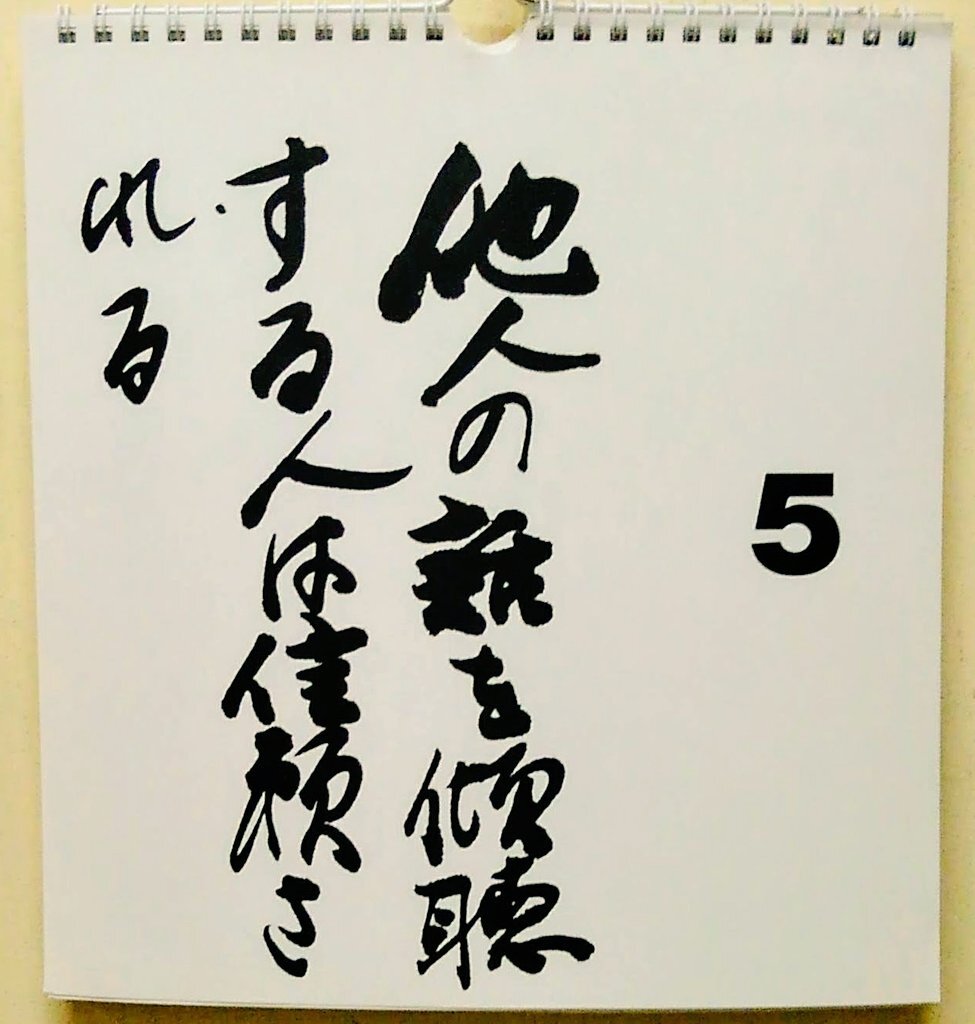 5
他人の話を傾聴
する人は信頼さ
れる